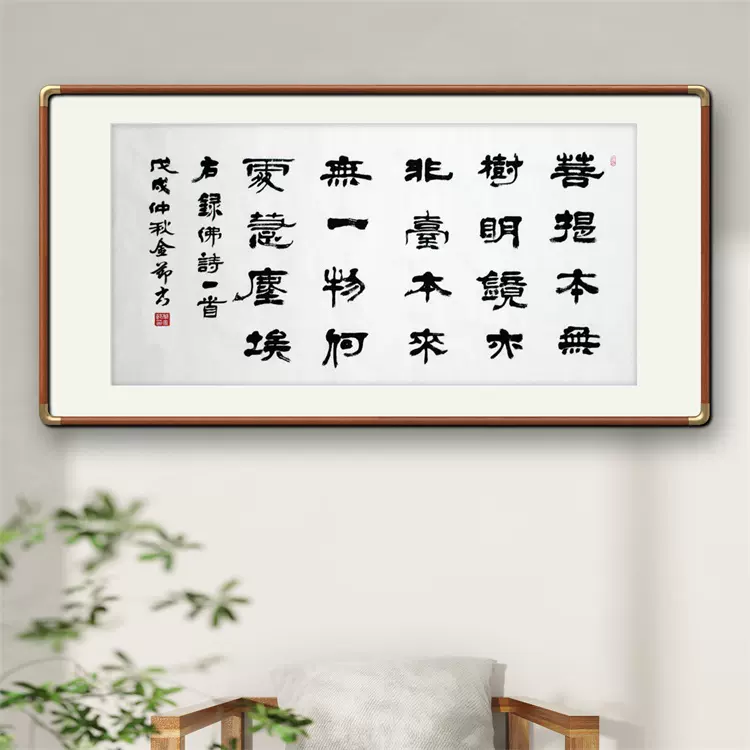 菩提本無
樹明鏡亦
非臺本來
無一物何
處惹塵埃
右録佛詩一首
戊戌仲秋金